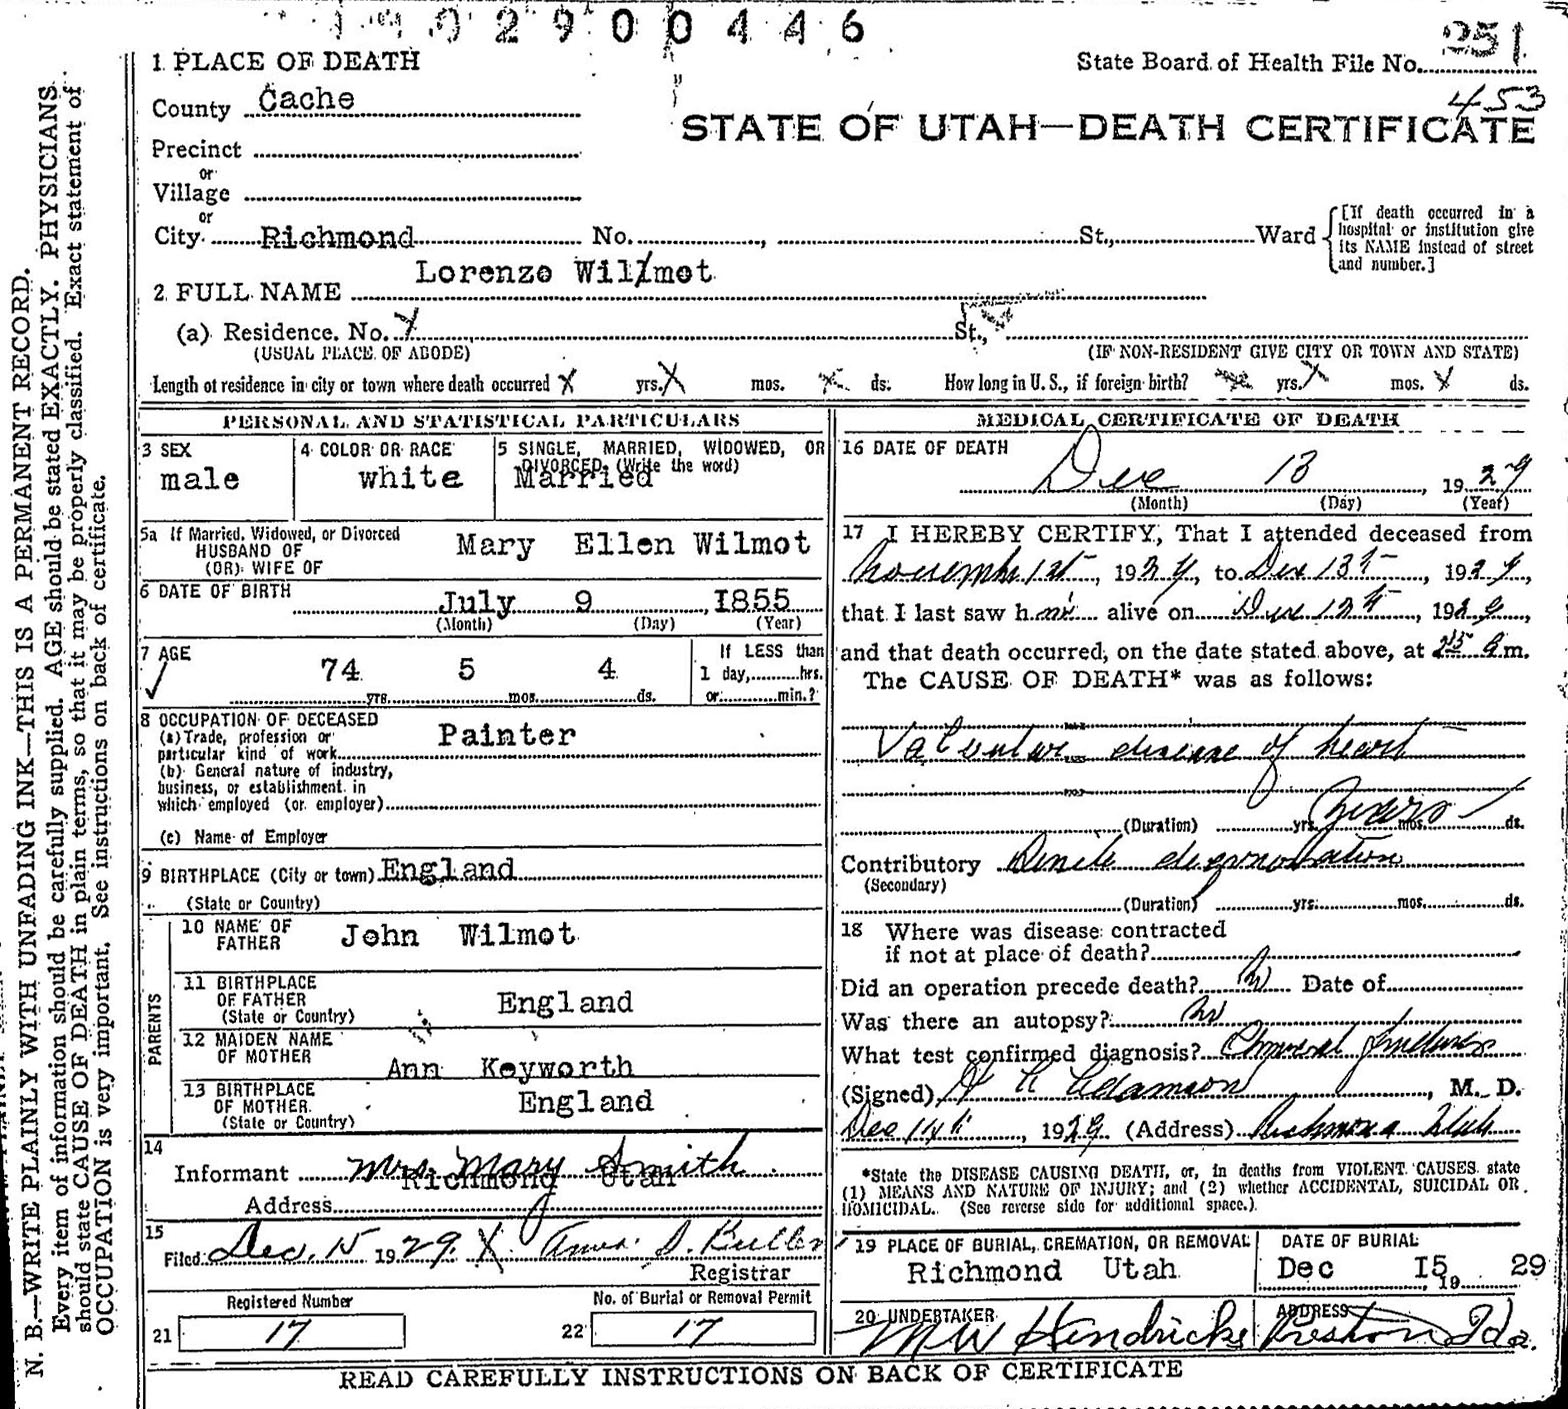 1902900446
251
1 PLACE OF DEATH
State Board of Health File No.
453
County Cache
STATE OF UTAH—DEATH CERTIFICATE
Precinct
or
Village
or
City Richmond No. , St., Ward
[If death occurred in a
hospital or institution give
its NAME instead of street
and number.]
2 FULL NAME Lorenzo Willmot
(a) Residence. No. St.,
(USUAL PLACE OF ABODE) (IF NON-RESIDENT GIVE CITY OR TOWN AND STATE)
Length of residence in city or town where death occurred X yrs. X mos. X ds. How long in U.S., if foreign birth? X yrs. X mos. X ds.
PERSONAL AND STATISTICAL PARTICULARS
3 SEX
male
4 COLOR OR RACE
white
5 SINGLE, MARRIED, WIDOWED, OR
DIVORCED, (Write the word)
Married
5a If Married, Widowed, or Divorced
HUSBAND OF
(OR) WIFE OF
Mary Ellen Wilmot
6 DATE OF BIRTH
July 9, 1855
(Month) (Day) (Year)
7 AGE
74 yrs. 5 mos. 4 ds.
If LESS than
1 day, hrs.
or min.?
8 OCCUPATION OF DECEASED
(a) Trade, profession or
particular kind of work Painter
(b) General nature of industry,
business, or establishment in
which employed (or employer)
(c) Name of Employer
9 BIRTHPLACE (City or town) England
(State or Country)
PARENTS
10 NAME OF
FATHER
John Wilmot
11 BIRTHPLACE
OF FATHER
(State or Country)
England
12 MAIDEN NAME
OF MOTHER
Ann Keyworth
13 BIRTHPLACE
OF MOTHER
(State or Country)
England
14
Informant Mrs. Mary Smith
Richmond Utah
Address
15
Filed Dec. 15 1929. X S. Butler
Registrar
Registered Number
21 17
No. of Burial or Removal Permit
22 17
MEDICAL CERTIFICATE OF DEATH
16 DATE OF DEATH
Dec 13, 1929
(Month) (Day) (Year)
17 I HEREBY CERTIFY, That I attended deceased from
November 1st, 1929, to Dec 13th, 1929,
that I last saw him alive on Dec 12th, 1929,
and that death occurred, on the date stated above, at 2 15 a m.
The CAUSE OF DEATH* was as follows:
Valvular disease of heart
(Duration) yrs. Years mos. ds.
Contributory Senile degeneration
(Secondary)
(Duration) yrs. mos. ds.
18 Where was disease contracted
if not at place of death?
Did an operation precede death? No Date of
Was there an autopsy? No
What test confirmed diagnosis?
(Signed) Adamson, M. D.
Dec 14th, 1929 (Address) Richmond Utah
*State the DISEASE CAUSING DEATH, or, in deaths from VIOLENT CAUSES state
(1) MEANS AND NATURE OF INJURY; and (2) whether ACCIDENTAL, SUICIDAL OR
HOMICIDAL. (See reverse side for additional space.)
19 PLACE OF BURIAL, CREMATION, OR REMOVAL
Richmond Utah
DATE OF BURIAL
Dec 15 19 29
20 UNDERTAKER
M W Hendricks
ADDRESS
Preston Ida.
READ CAREFULLY INSTRUCTIONS ON BACK OF CERTIFICATE
N. B.—WRITE PLAINLY WITH UNFADING INK—THIS IS A PERMANENT RECORD.
Every item of information should be carefully supplied. AGE should be stated EXACTLY. PHYSICIANS
should state CAUSE OF DEATH in plain terms, so that it may be properly classified. Exact statement of
OCCUPATION is very important. See instructions on back of certificate.